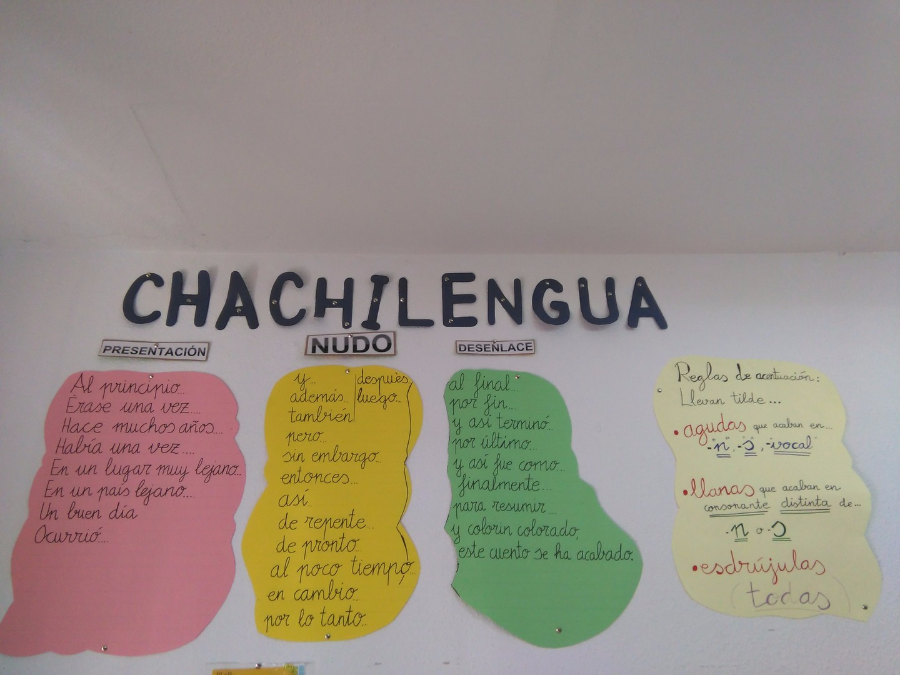 CHACHILENGUA
PRESENTACIÓN
Al principio...
Érase una vez...
Hace muchos años...
Había una vez....
En un lugar muy lejano..
En un país lejano...
Un buen día
Ocurrió...
NUDO
y...
además..
también
pero...
sin embargo..
entonces...
así...
de repente...
de pronto..
al poco tiempo..
en cambio..
por lo tanto..
después
luego...
DESENLACE
al final...
por fin...
y así terminó..
por último...
y así fue como..
finalmente...
para resumir...
y colorín colorado,
este cuento se ha acabado.
Reglas de acentuación:
Llevan tilde...
•agudas que acaban en...
-n, -s, -vocal
•llanas que acaban en
consonante distinta de...
-n o -s
•esdrújulas
(todas)